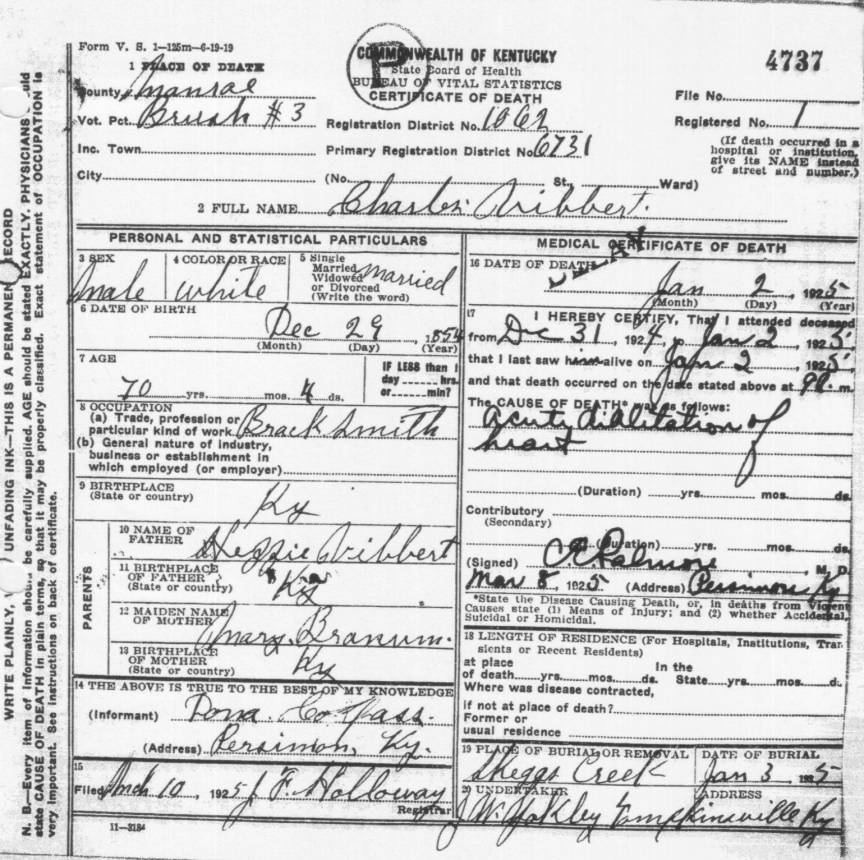 Form V. S. 1—125m—6-19-19
COMMONWEALTH OF KENTUCKY
State Board of Health
BUREAU OF VITAL STATISTICS
CERTIFICATE OF DEATH
P
4737
1 PLACE OF DEATH
County Monroe
Vot. Pct. Brush #3
Inc. Town
City
Registration District No. 1062
Primary Registration District No. 6731
(No. St., Ward)
File No.
Registered No. 1
(If death occurred in a
hospital or institution,
give its NAME instead
of street and number.)
2 FULL NAME Charles Vibbert.
PERSONAL AND STATISTICAL PARTICULARS
3 SEX
Male
4 COLOR OR RACE
White
5 Single
Married
Widowed
or Divorced
(Write the word)
Married
6 DATE OF BIRTH
Dec 29, 1854
(Month) (Day) (Year)
7 AGE
70 yrs. mos. 4 ds.
IF LESS than 1
day hrs.
or min?
8 OCCUPATION
(a) Trade, profession or
particular kind of work Brack Smith
(b) General nature of industry,
business or establishment in
which employed (or employer)
9 BIRTHPLACE
(State or country)
Ky
PARENTS
10 NAME OF
FATHER
Vibbert
11 BIRTHPLACE
OF FATHER
(State or country)
Ky
12 MAIDEN NAME
OF MOTHER
Mary Branum.
13 BIRTHPLACE
OF MOTHER
(State or country)
Ky
14 THE ABOVE IS TRUE TO THE BEST OF MY KNOWLEDGE
(Informant)
(Address) Persimon, Ky.
15
Filed Mch 10, 1925 J F. Holloway
Registrar
11—3184
MEDICAL CERTIFICATE OF DEATH
DELAY
16 DATE OF DEATH
Jan 2, 1925
(Month) (Day) (Year)
17 I HEREBY CERTIFY, That I attended deceased
from Dec 31, 1924, to Jan 2, 1925
that I last saw him alive on Jan 2, 1925
and that death occurred on the date stated above at 9P. m.
The CAUSE OF DEATH* was as follows:
Acute dilitation of
heart
(Duration) yrs. mos. ds.
Contributory
(Secondary)
(Duration) yrs. mos. ds.
(Signed) C. E. Palmore M. D.
Mar 8, 1925 (Address) Persimon Ky
*State the Disease Causing Death, or, in deaths from Violent
Causes state (1) Means of Injury; and (2) whether Accidental,
Suicidal or Homicidal.
18 LENGTH OF RESIDENCE (For Hospitals, Institutions, Tran-
sients or Recent Residents)
at place In the
of death yrs. mos. ds. State yrs. mos. ds.
Where was disease contracted,
if not at place of death?
Former or
usual residence
19 PLACE OF BURIAL OR REMOVAL
Skeggs Creek
DATE OF BURIAL
Jan 3, 1925
20 UNDERTAKER
J. W. Yokley
ADDRESS
Tompkinsville Ky
N. B.—Every item of information should be carefully supplied. AGE should be stated EXACTLY. PHYSICIANS should
state CAUSE OF DEATH in plain terms, so that it may be properly classified. Exact statement of OCCUPATION is
very important. See instructions on back of certificate.
WRITE PLAINLY, UNFADING INK—THIS IS A PERMANENT RECORD